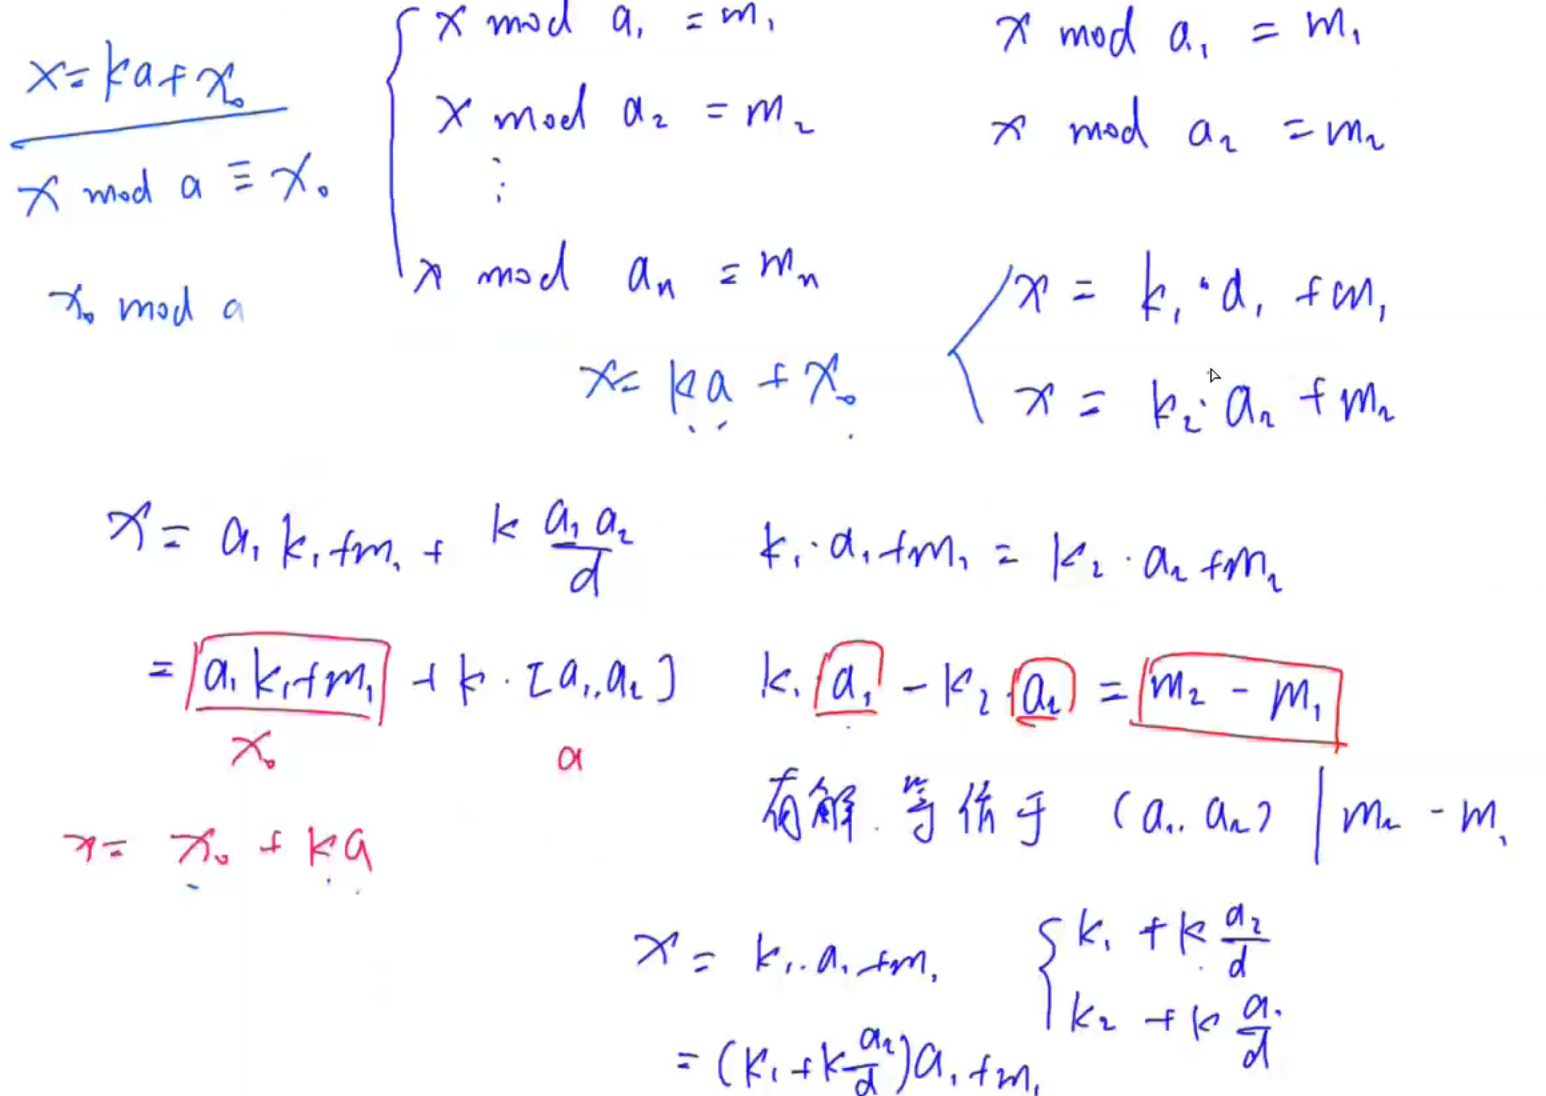 x = ka + x₀
x mod a ≡ x₀
x₀ mod a
x mod a₁ = m₁
x mod a₂ = m₂
⋮
x mod aₙ = mₙ
x = ka + x₀
x mod a₁ = m₁
x mod a₂ = m₂
x = k₁·a₁ + m₁
x = k₂·a₂ + m₂
x = a₁k₁ + m₁ + k a₁a₂/d
= a₁k₁ + m₁ + k·[a₁,a₂]
x₀ a
x = x₀ + ka
k₁·a₁ + m₁ = k₂·a₂ + m₂
k₁ a₁ - k₂ a₂ = m₂ - m₁
有解. 等价于 (a₁, a₂) | m₂ - m₁
x = k₁·a₁ + m₁
= (k₁ + k a₂/d)a₁ + m₁
k₁ + k a₂/d
k₂ + k a₁/d